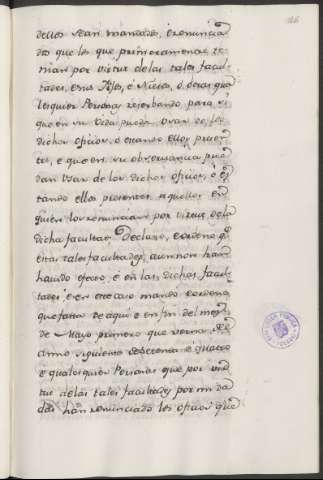 dellos sean tomadas, e renuncia
dos que los que primeramente te
nian por virtud de las tales facul
tades, en sus fijos, é Nietos, ó otras qua
lesquier Personas reservando para si
que en su vida puedan usar de los
dichos oficios, é cuando ellos presen
tes, e que en su observancia pue
dan Usar de los dichos oficios, ó es
tando ellos presentes aquellos en
quien los renunciaren por virtud de la
dicha facultad. Declaro, é ordeno que
estas tales facultades, aun non han
havido efecto, é en las dichas facul
tades, é en este caso mando, é ordeno
que fasta de aqui e en fin del mes
de Mayo primero que verna, de
el año siguiente de setenta é quatro
é qualesquier Personas que por vir
tud de las tales facultades por mi da
das han renunciado los oficios que